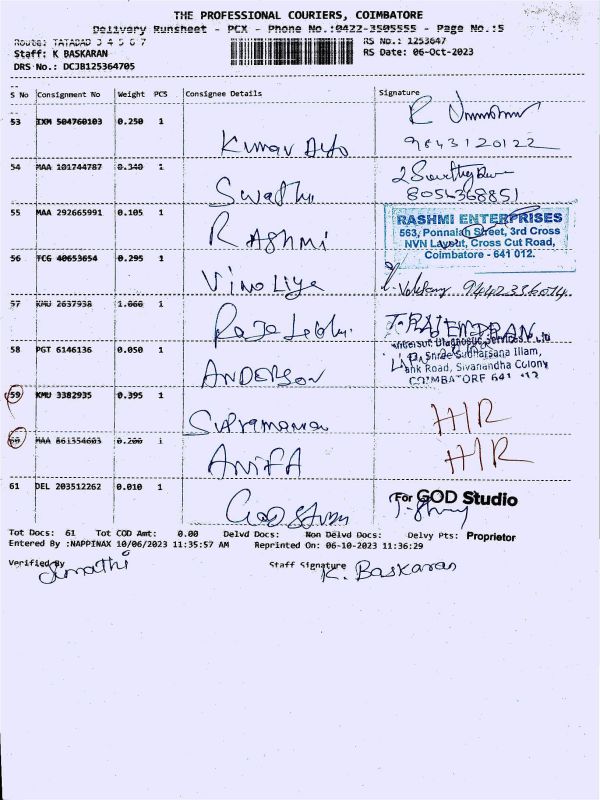 THE PROFESSIONAL COURIERS, COIMBATORE
Delivery Runsheet - PCX - Phone No.:0422-3505555 - Page No.:5
Route: TATABAD 3 4 5 6 7
RS No.: 1253647
Staff: K BASKARAN
RS Date: 06-Oct-2023
DRS No.: DCJB125364705
S No Consignment No Weight PCS Consignee Details Signature
53 IXM 504760103 0.250 1
Kumar
9843120122
54 MAA 101744787 0.340 1
Swathi
8056368851
55 MAA 292665991 0.105 1
RASHMI
RASHMI ENTERPRISES
563, Ponnaiah Street, 3rd Cross
NVN Layout, Cross Cut Road,
Coimbatore - 641 012.
56 TCG 40653654 0.295 1
Vino Liya
57 KMU 2637938 1.066 1
T. RAJENDRAN
Diagnostic Services P Ltd
Shree Sudharsana Illam,
Road, Sivanandha Colony
58 PGT 6146136 0.050 1
ANDERSON
COIMBATORE 641 012
59 KMU 3382935 0.395 1
Supramania
H/R
60 MAA 861354603 0.200 1
ANIFA
H/R
61 DEL 203512262 0.010 1
GOD
For GOD Studio
Tot Docs: 61 Tot COD Amt: 0.00 Delvd Docs: Non Delvd Docs: Delvy Pts: Proprietor
Entered By :NAPPINAX 10/06/2023 11:35:57 AM Reprinted On: 06-10-2023 11:36:29
Verified By
Sumathi
Staff Signature
K. Baskaran